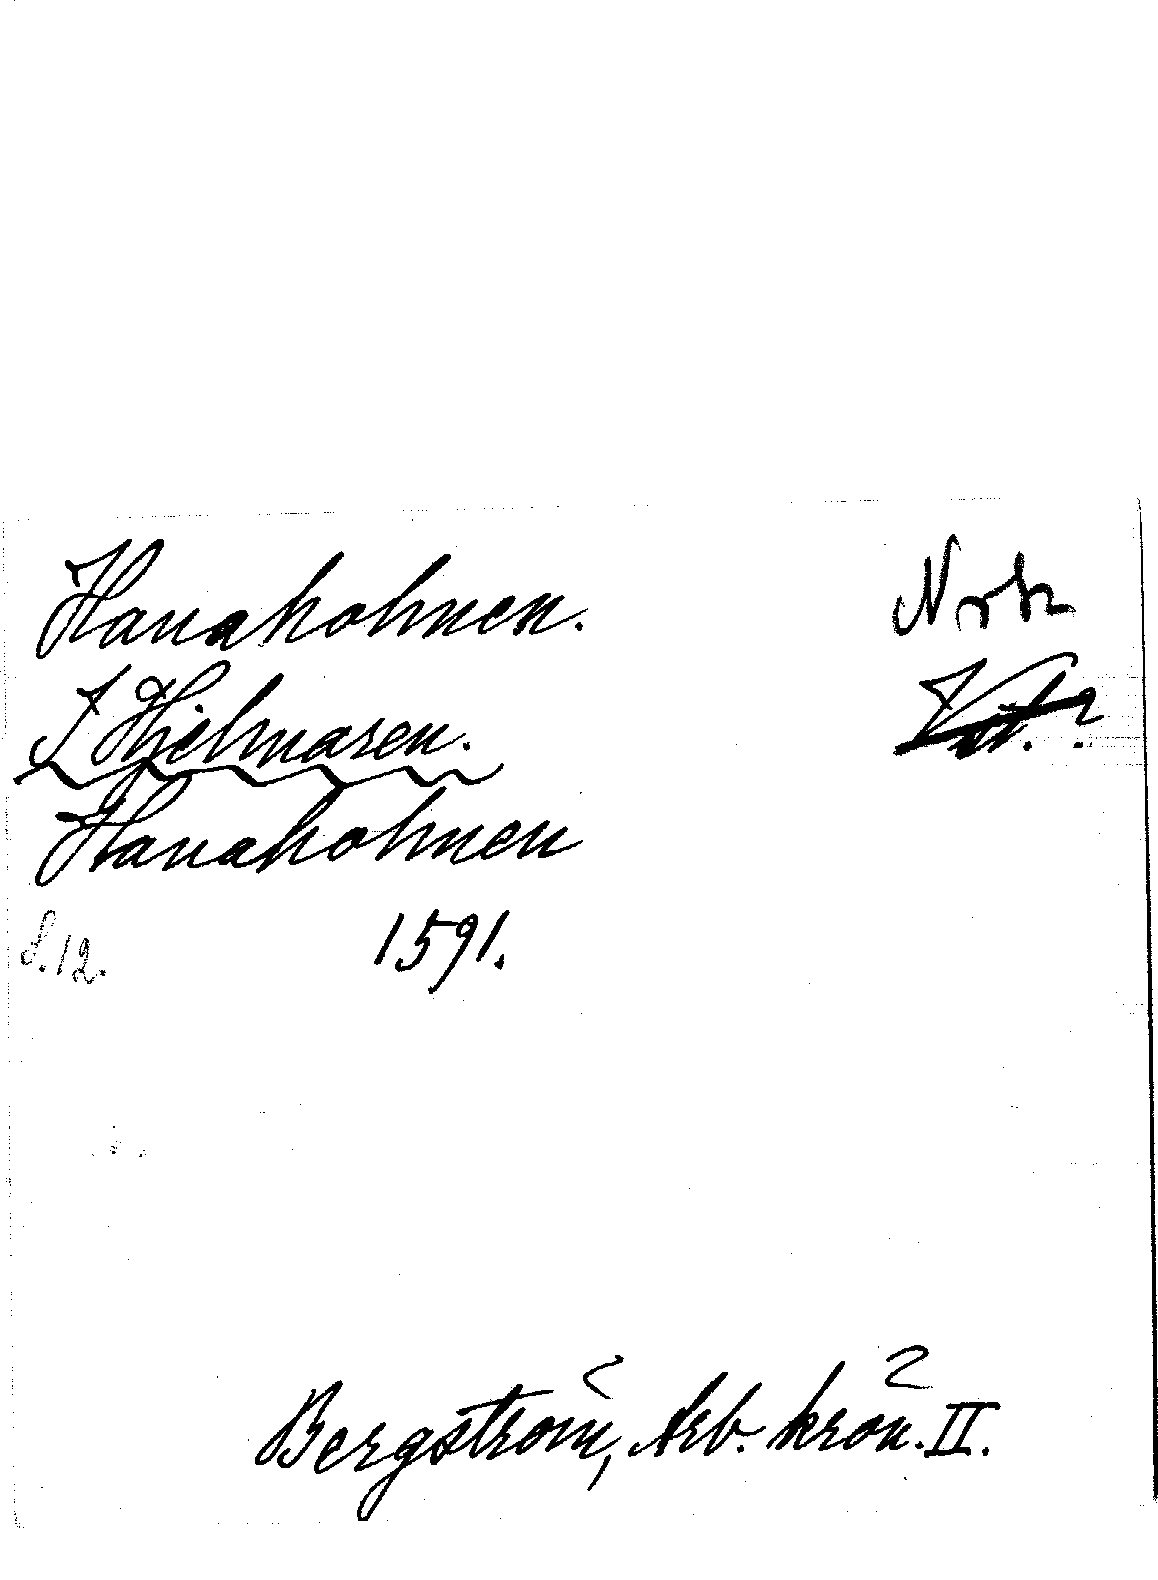 Hanaholmen.
I Hjelmaren.
Hanaholmen
S. 12. 1591.
Bergström, Arb. krön. II.